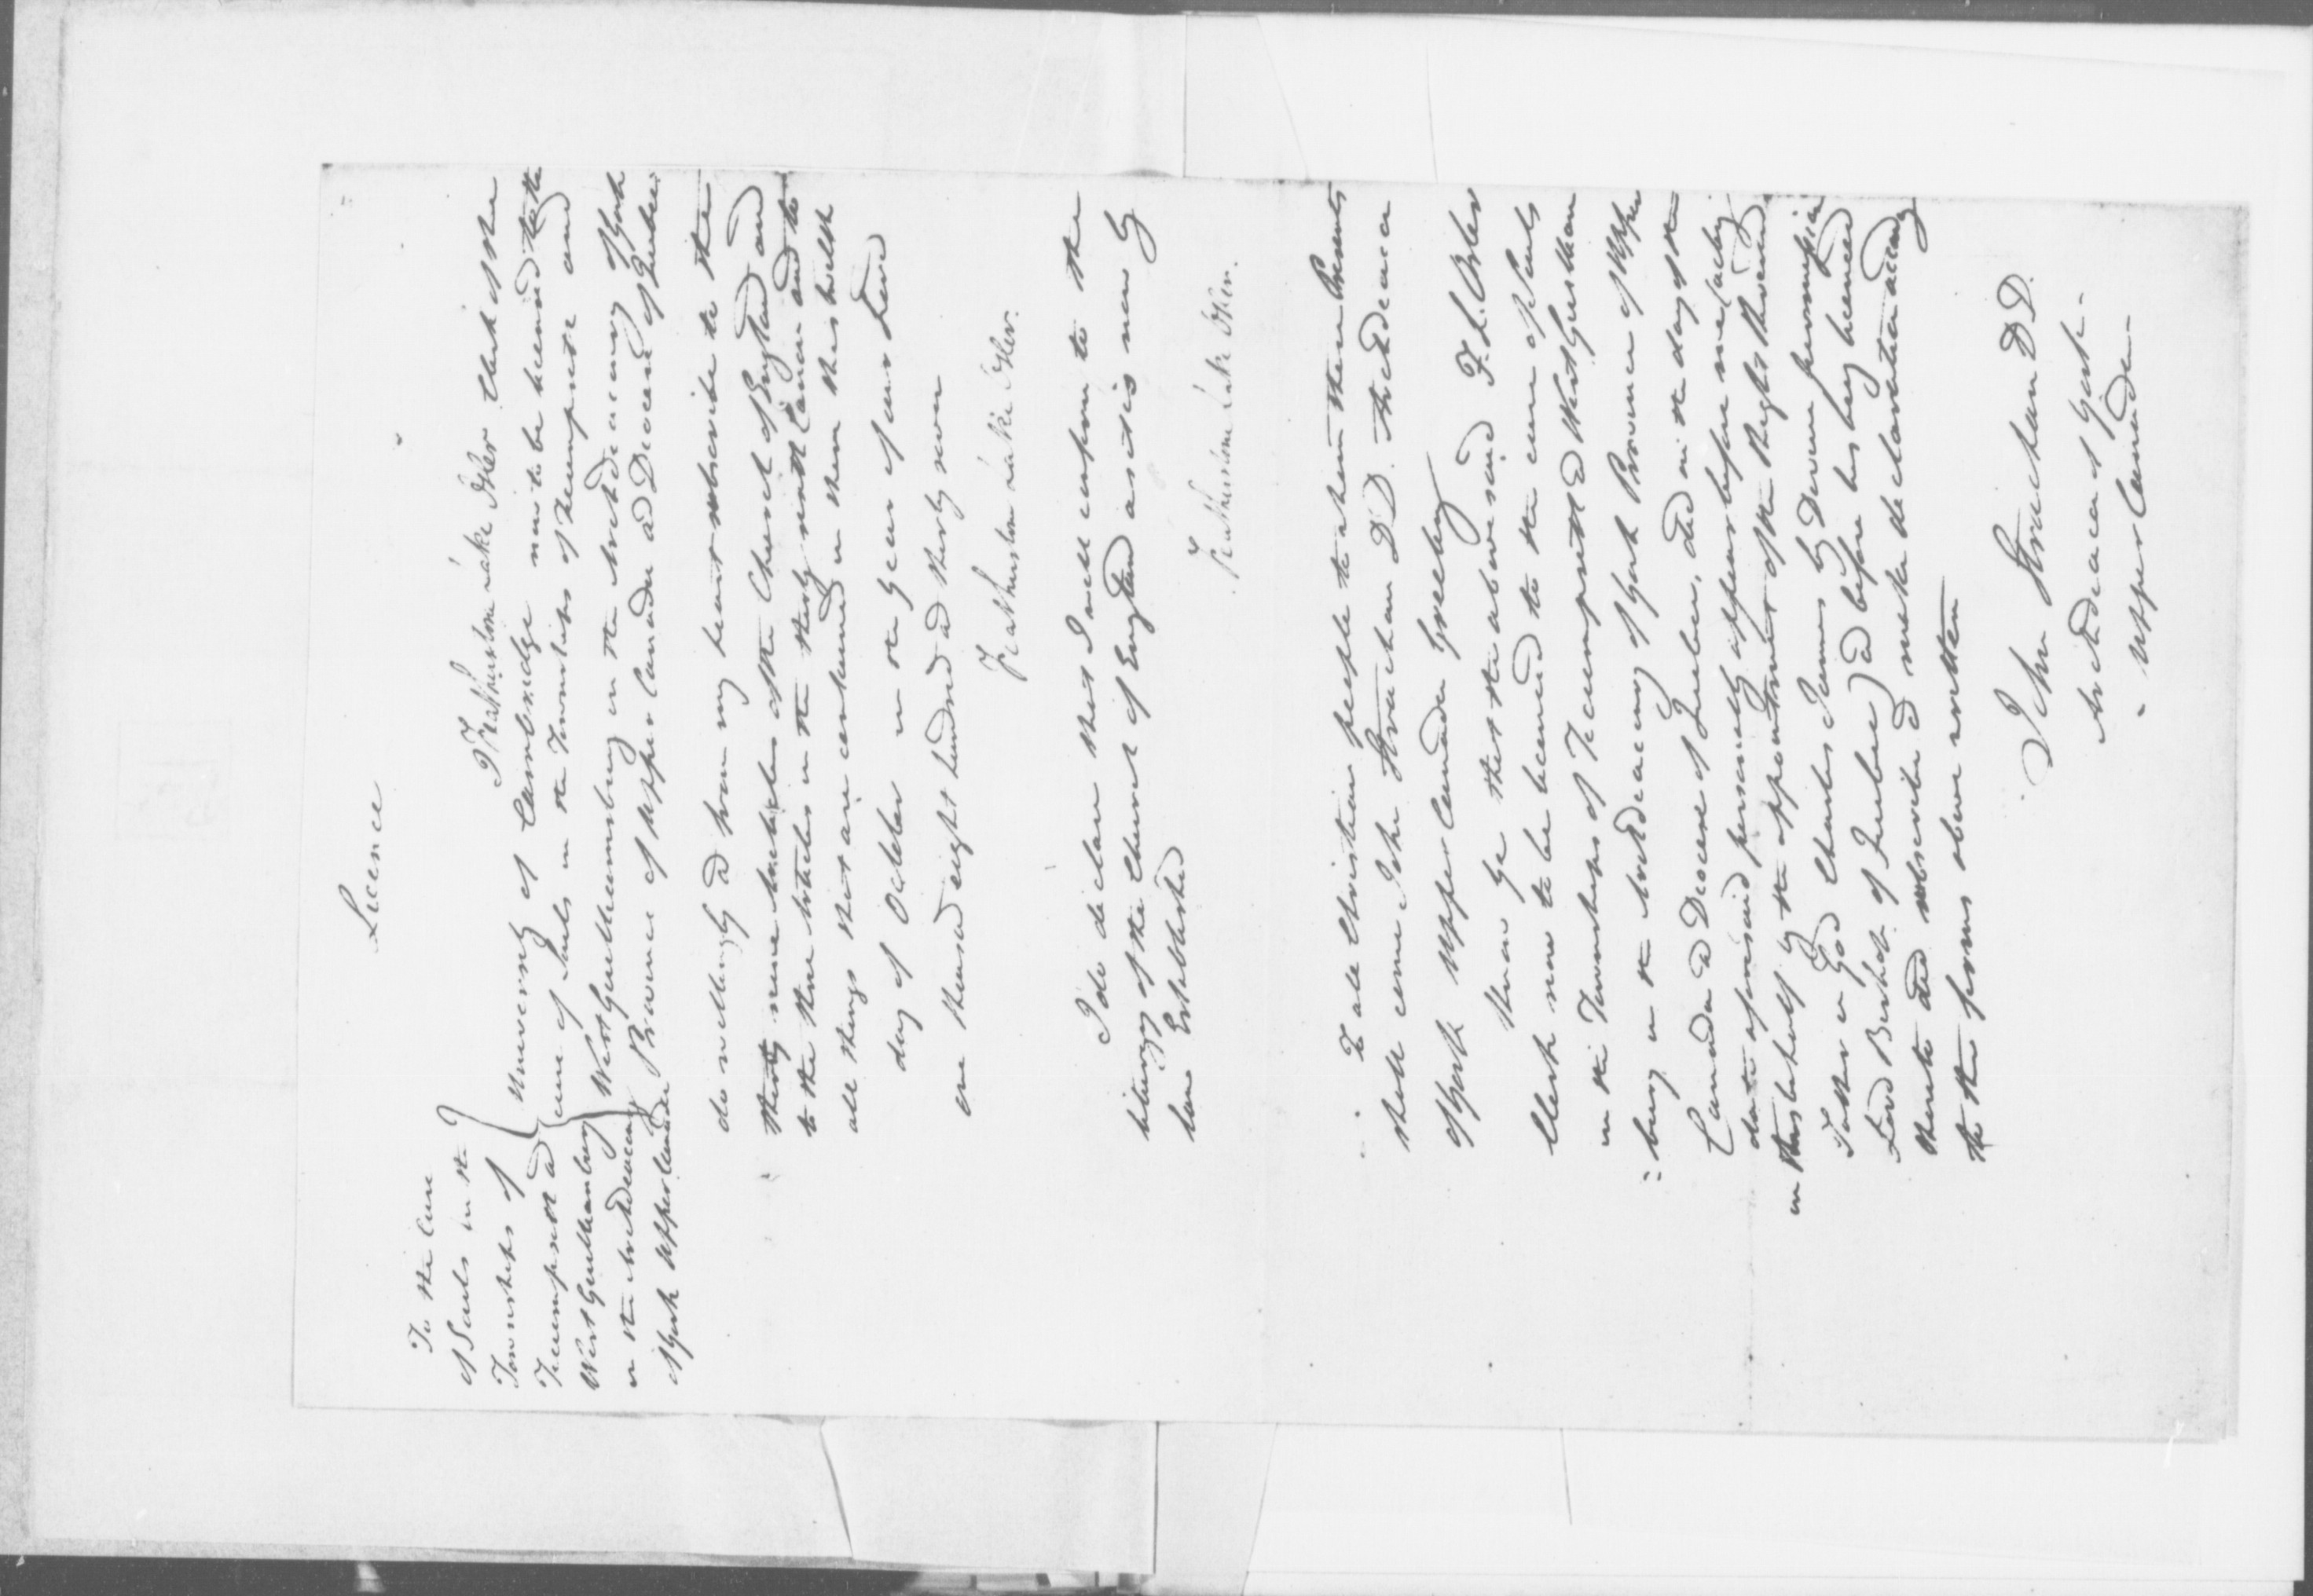 Licence
To the Cure
of Souls in the
Townships of
Tecumpseth ad
West Gwillimbury
in the Archdeaconry
of York Upper Canada
I Featherstone Lake Osler Clerk of the
University of Cambridge now to be licenced to the
cure of Souls in the Townships of Tecumpseth and
West Gwillimbury in the Archdeaconry of York
Province of Upper Canada ad Diocese of Quebec
do willingly ad from my heart subscribe to the
thirty nine Articles of the Church of England and
to the three Articles in the thirty sixth Canon and to
all things that are contained in them this twelfth
day of October in the year of our Lord
one thousand eight hundred ad thirty seven
Featherstone Lake Osler.
I do declare that I will conform to the
Liturgy of the Church of England as it is now by
Law Established
Featherstone Lake Osler.
To all Christian people to whom these Presents
shall come John Strachan D.D. Archdeacon
of York Upper Canada Greeting
Know ye that the abovesaid F. L. Osler
Clerk now to be licenced to the cure of Souls
in the Townships of Tecumpseth ad West Gwillim
bury in the Archdeaconry of York Province of Upper
Canada ad Diocese of Quebec, did on the day of the
date aforesaid personally appear before me (acting
in this behalf by the appointment of the Right Reverend
Father in God Charles James by Divine permission
Lord Bishop of Quebec) ad before his being licenced
thereto did subscribe ad make declaration according
to the forms above written
John Strachan DD.
Archdeacon of York
Upper Canada